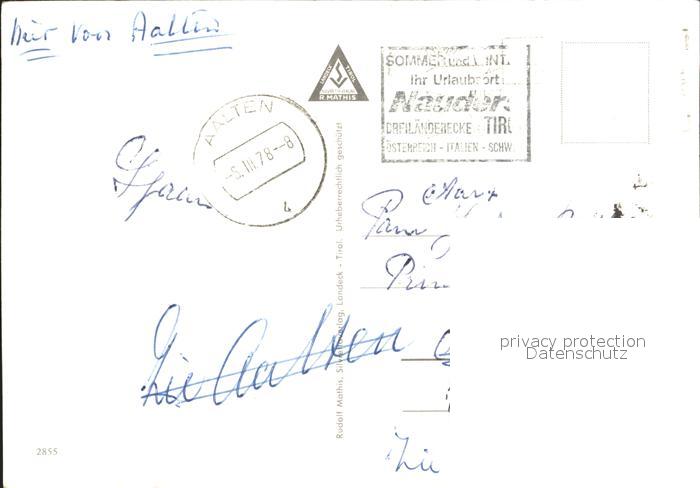 Aalten
LANDECK TIROL
R MATHIS
SOMMER und WINT
Ihr Urlaubsort
Nauders
DREILÄNDERECKE TIRO
ÖSTERREICH - ITALIEN - SCHW
AALTEN
-6.III.78-8
4
Rudolf Mathis, Silvretta-Verlag, Landeck - Tirol. Urheberrechtlich geschützt
Fam
Prin
Zie Aalten
privacy protection
Datenschutz
Zie
2855